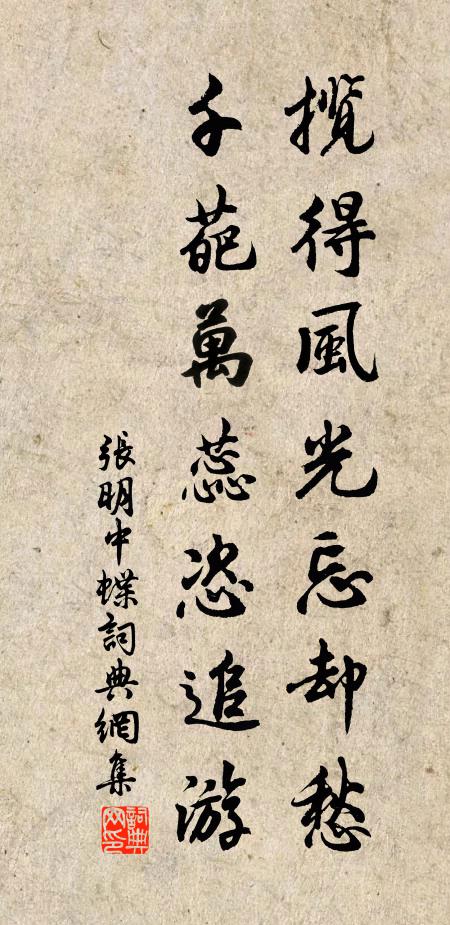 攬得風光忘却愁
千葩萬蕊恣追游
張明中蝶詞典網集
詞典網印